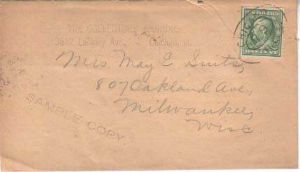 THE COLLECTORS
3812 Liberty Ave.
Mrs May E. Smith,
807 Oakland Ave,
Milwaukee,
Wisc.
SAMPLE COPY